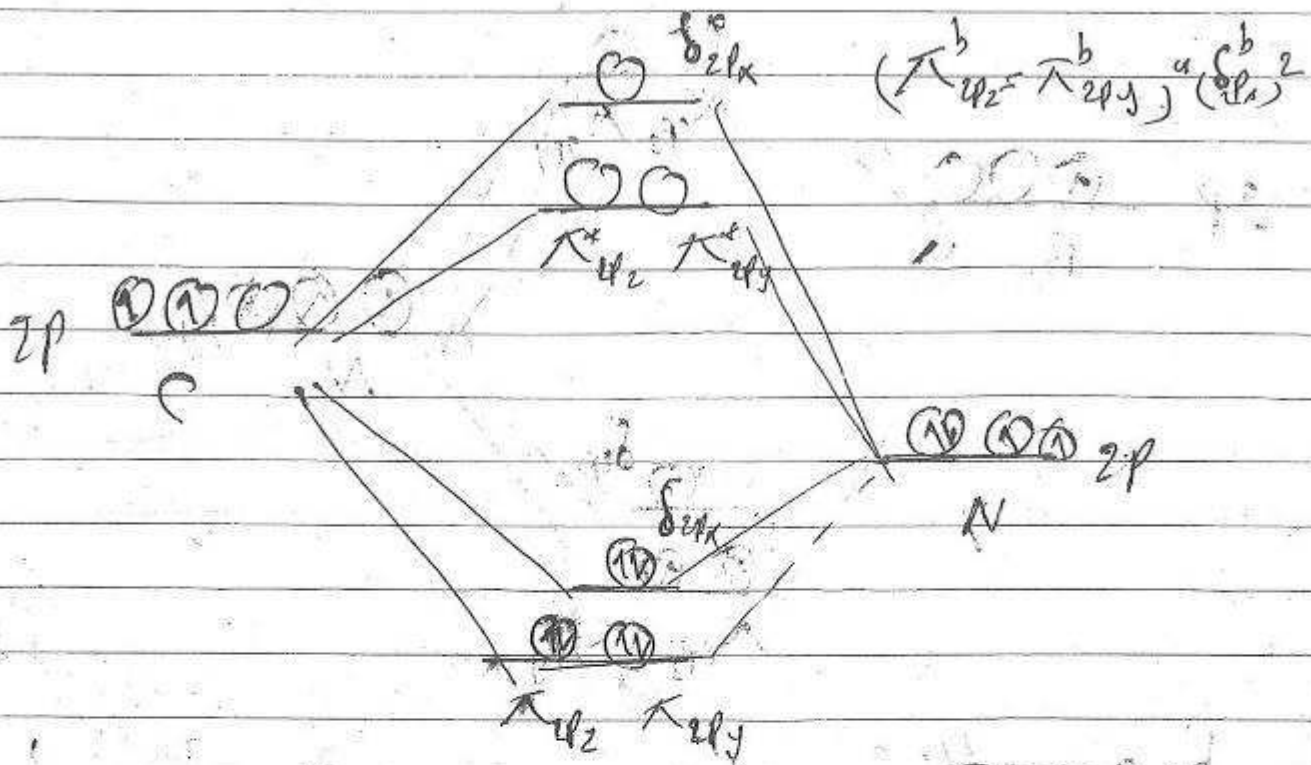 δ*2px
(π^b 2pz = π^b 2py)^4 (δ^b 2px)^2
π*2pz π*2py
2p
C
2p
N
δ2px
π2pz π2py